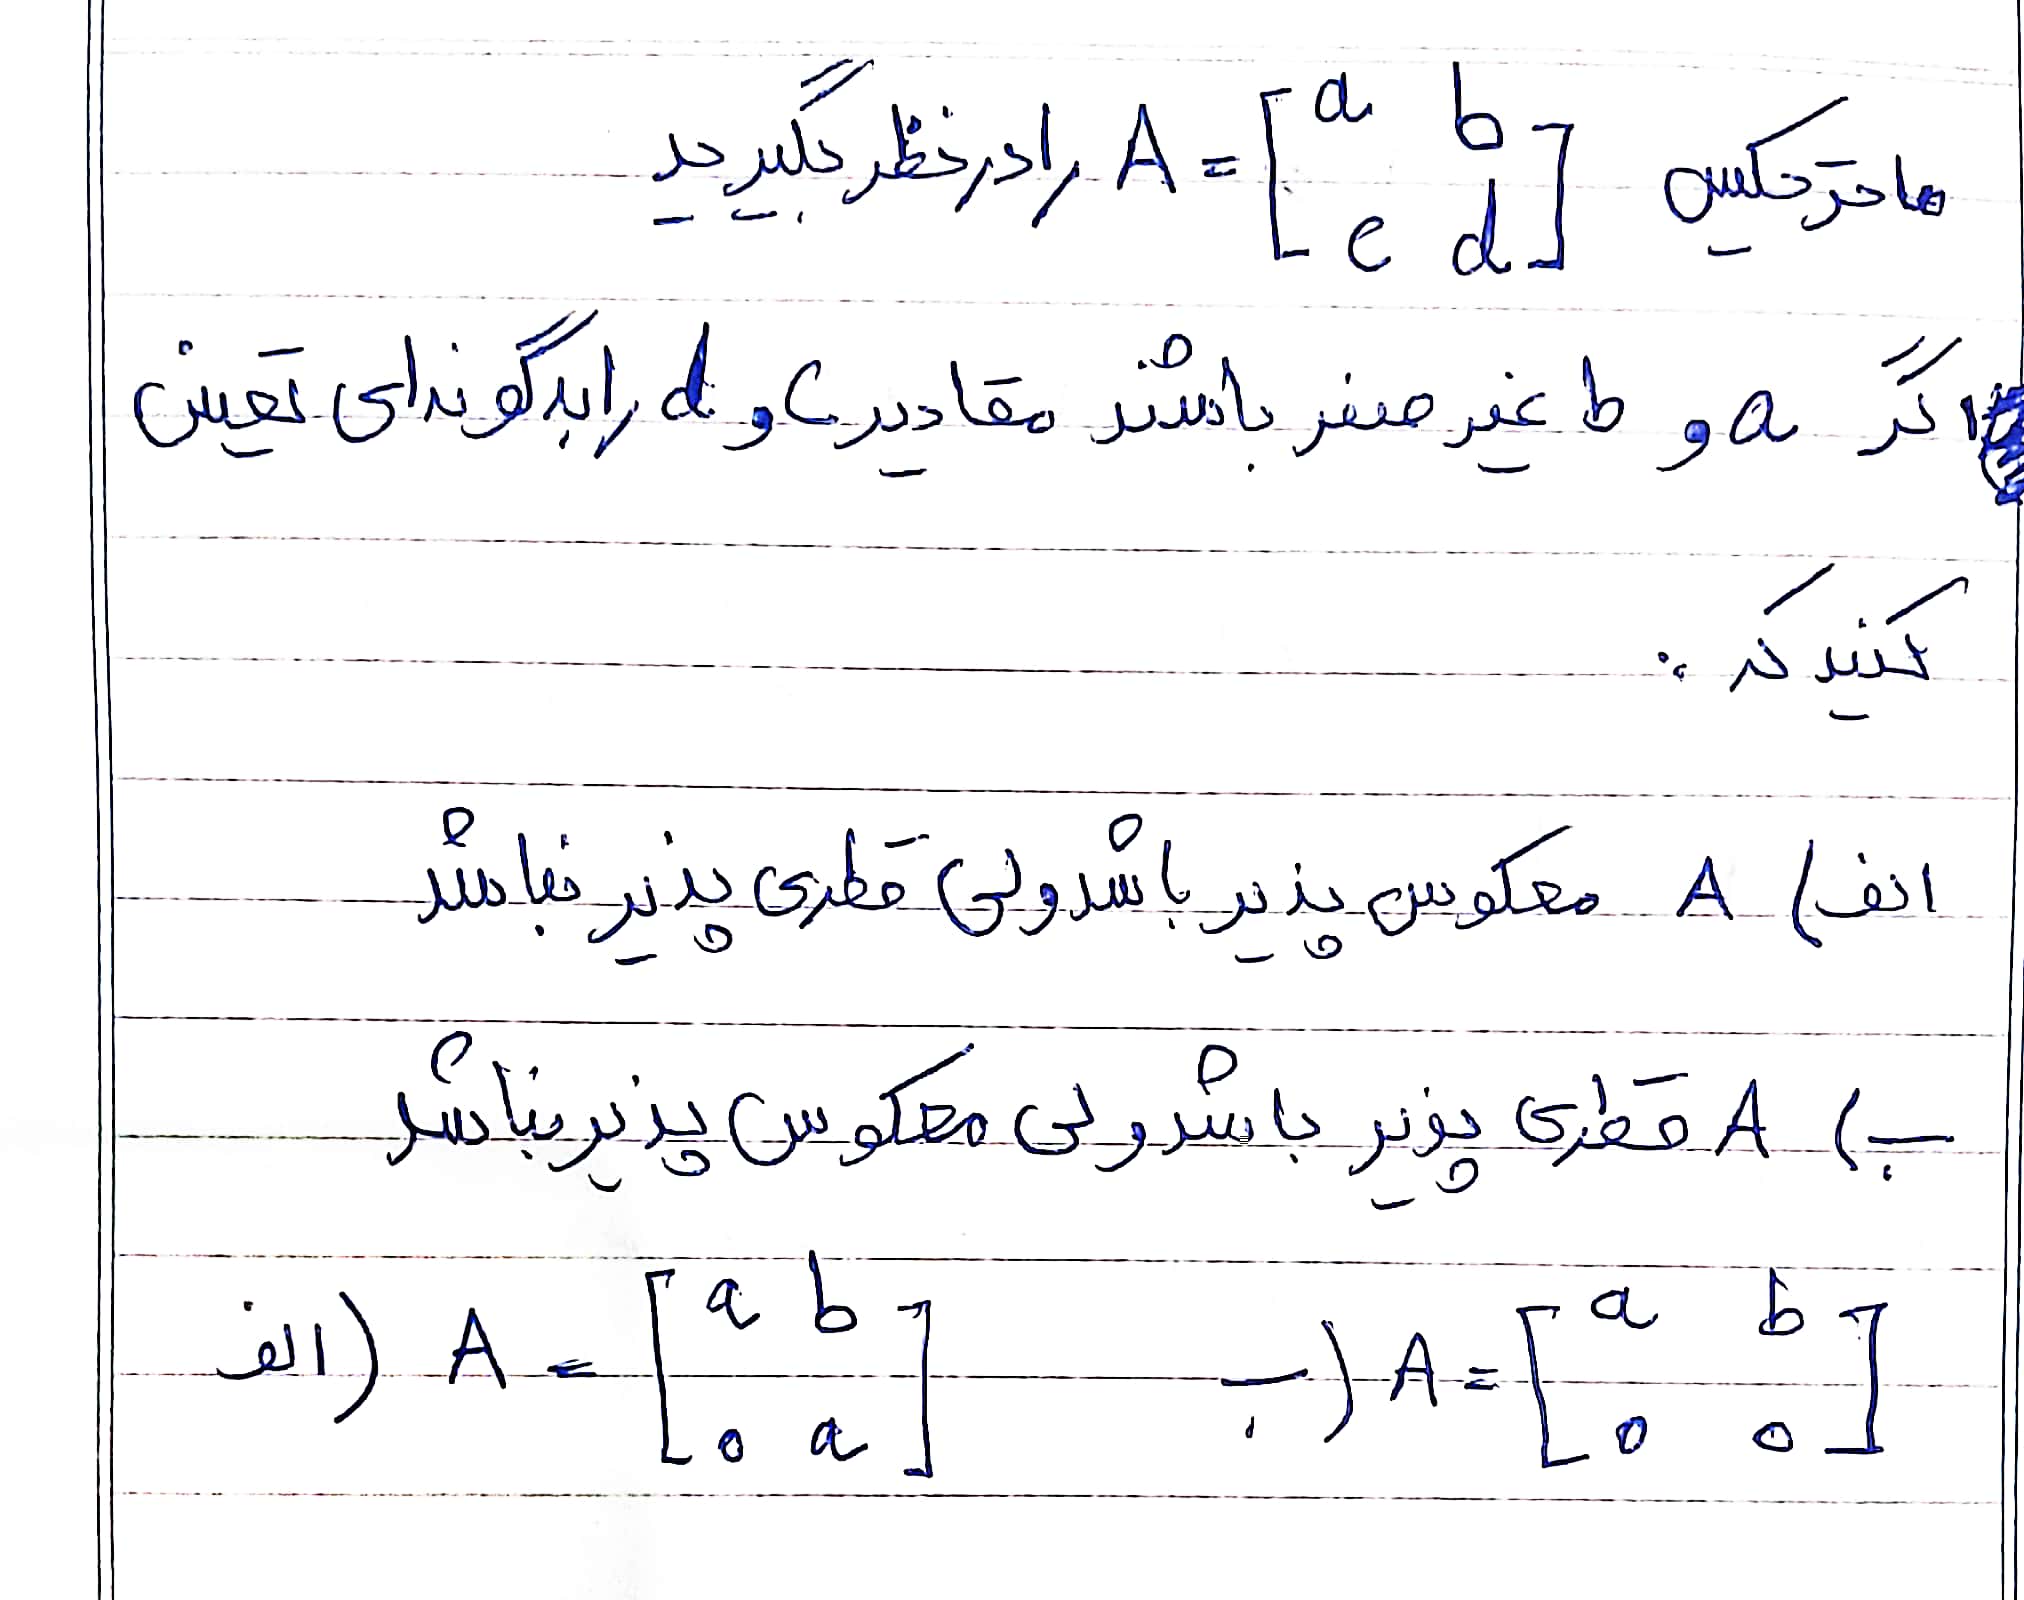 ماتریس A = [a b
c d] را در نظر بگیرید
اگر a و b غیر صفر باشند مقادیر c و d را به گونه‌ای تعیین
کنید که :
الف) A معکوس پذیر باشد ولی قطری پذیر نباشد
ب) A قطری پذیر باشد ولی معکوس پذیر نباشد
الف) A = [a b
0 a]    ب) A = [a b
0 0]